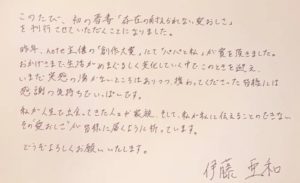 このたび、初の著書「存在の耐えられない愛おしさ」
を刊行させていただくことになりました。
昨年、note主催の「創作大賞」にて「パパと私」が賞を頂きました。
おかげさまで生活がめまぐるしく変化していく中でこのときを迎え、
いまだ実感の湧かないところはありつつ、携わってくださった皆様には
感謝の気持ちでいっぱいです。
私が人生で出会ってきた人々や家族、そして、私が私に伝えることのできない
その"愛おしさ"が皆様に届くように祈っています。
どうぞよろしくお願いいたします。
伊藤亜和